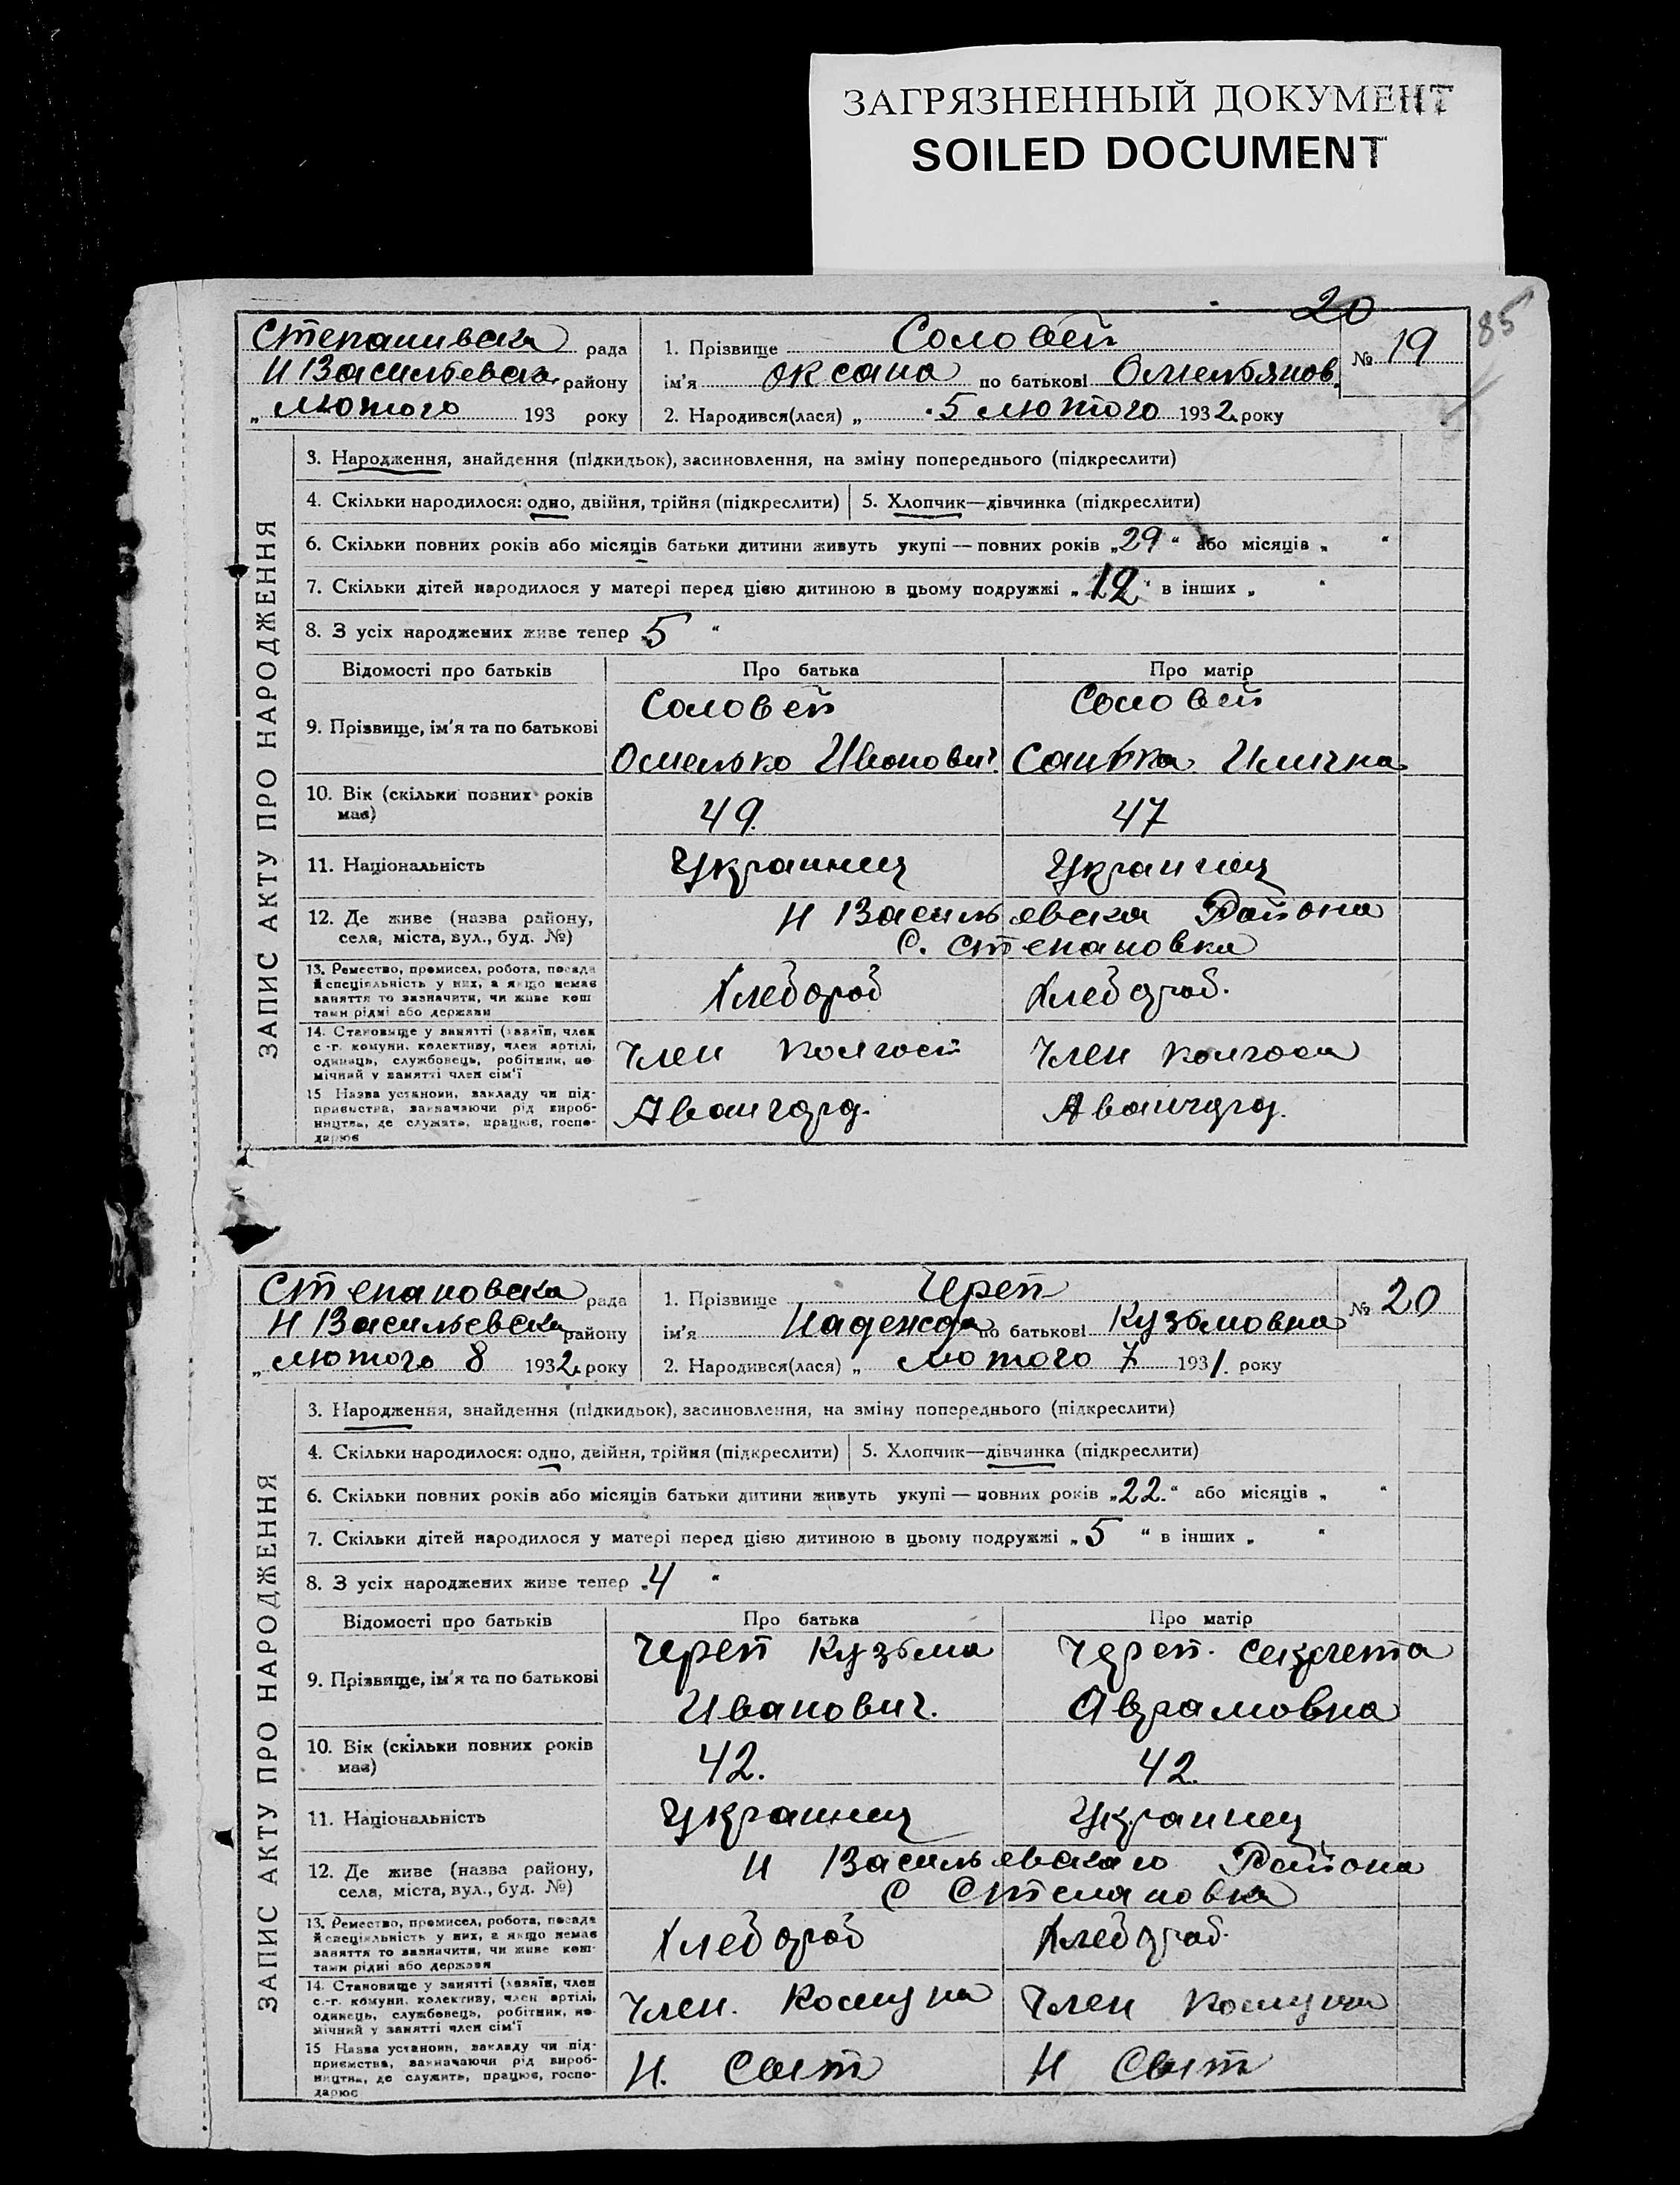 ЗАГРЯЗНЕННЫЙ ДОКУМЕНТ
SOILED DOCUMENT
20
85
Степанивска рада
Н Васильевска району
„ лютого 193 року
1. Прізвище Соловей
ім'я Оксана по батькові Омельянов.
2. Народився(лася) „ 5 лютого 1932 року
№ 19
ЗАПИС АКТУ ПРО НАРОДЖЕННЯ
3. Народження, знайдення (підкидьок), засиновлення, на зміну попереднього (підкреслити)
4. Скільки народилося: одно, двійня, трійня (підкреслити) 5. Хлопчик—дівчинка (підкреслити)
6. Скільки повних років або місяців батьки дитини живуть укупі — повних років „29“ або місяців „ “
7. Скільки дітей народилося у матері перед цією дитиною в цьому подружжі „12“ в інших „ “
8. З усіх народжених живе тепер „5 “
Відомості про батьків Про батька Про матір
9. Прізвище, ім'я та по батькові
Соловей Соловей
Омелько Иванович Илична
10. Вік (скільки повних років має) 49. 47
11. Національність Украинец Украинец
12. Де живе (назва району, села, міста, вул., буд. №)
Н Васильевска Района
С. Степановка
13. Ремество, промисел, робота, посада
й спеціяльність у них, а якщо немає
заняття то зазначити, чи живе кош
тами рідні або держави
Хлебороб Хлебороб.
14. Становище у занятті (хазяїн, член
с.-г. комуни, колективу, член артілі,
одинець, службовець, робітник, по-
мічний у занятті член сім'ї
Член колгосп Член колгосп
15 Назва установи, закладу чи під-
приємства, зазначаючи рід вироб-
ництва, де служить, працює, госпо-
дарює
Авангард. Авангард.
Степановска рада
Н Васильевска району
„ лютого 8 1932 року
1. Прізвище Череп
ім'я Надежда по батькові Кузьмовна
2. Народився(лася) „ лютого 7 1931. року
№ 20
ЗАПИС АКТУ ПРО НАРОДЖЕННЯ
3. Народження, знайдення (підкидьок), засиновлення, на зміну попереднього (підкреслити)
4. Скільки народилося: одно, двійня, трійня (підкреслити) 5. Хлопчик—дівчинка (підкреслити)
6. Скільки повних років або місяців батьки дитини живуть укупі — повних років „22.“ або місяців „ “
7. Скільки дітей народилося у матері перед цією дитиною в цьому подружжі „5 “ в інших „ “
8. З усіх народжених живе тепер „4 “
Відомості про батьків Про батька Про матір
9. Прізвище, ім'я та по батькові
Череп Кузьма Череп.
Иванович. Аврамовна
10. Вік (скільки повних років має) 42. 42.
11. Національність Украинец Украинец
12. Де живе (назва району, села, міста, вул., буд. №)
Н Васильевскаго Района
С Степановка
13. Ремество, промисел, робота, посада
й спеціяльність у них, а якщо немає
заняття то зазначити, чи живе кош-
тами рідні або держави
Хлебороб Хлебороб.
14. Становище у занятті (хазяїн, член
с.-г. комуни, колективу, член артілі,
одинець, службовець, робітник, по-
мічний у занятті член сім'ї
Член. Комуна Член Комуна
15 Назва установи, закладу чи під-
приємства, зазначаючи рід вироб-
ництва, де служить, працює, госпо-
дарює
Н. Свит Н Свит